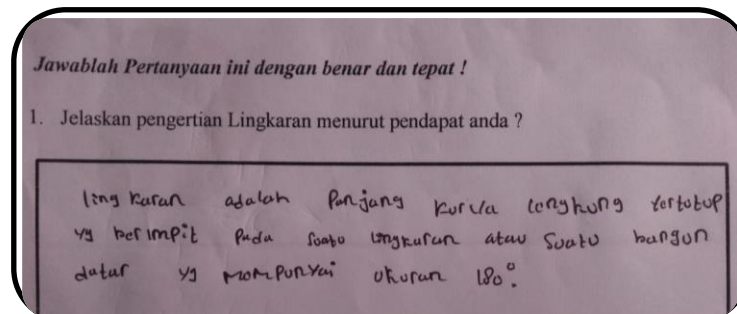 Jawablah Pertanyaan ini dengan benar dan tepat !
1. Jelaskan pengertian Lingkaran menurut pendapat anda ?
lingkaran adalah Panjang kurva lengkung tertutup
yg berimpit Pada suatu lingkaran atau suatu bangun
datar yg mempunyai ukuran 180°.